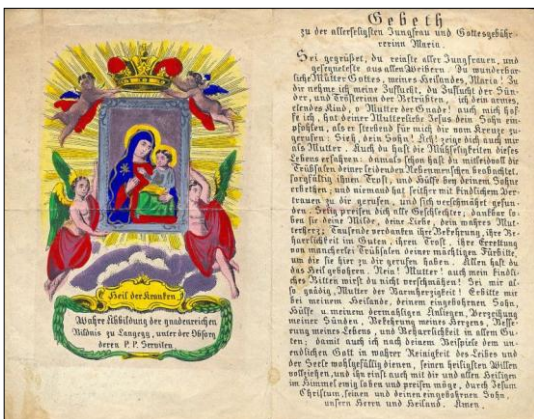 Heil der Kranken
Wahre Abbildung der gnadenreichen
Bildnis zu Langegg, unter der Obsorg
deren P. P. Serviten
Gebeth
zu der allerseligsten Jungfrau und Gottesgebähr-
rerinn Maria.
Sei gegrüßet, du reinste aller Jungfrauen, und
gesegneteste aus allen Weibern. Du wunderbar-
liche Mutter Gottes, meines Heilandes, Maria! Zu
dir nehme ich meine Zuflucht, du Zuflucht der Sün-
der, und Trösterinn der Betrübten, ich dein armes,
elendes Kind, o Mutter der Gnade! auch mich hof-
fe ich, hat deiner Mutterliebe Jesus dein Sohn em-
pfohlen, als er sterbend für mich dir vom Kreuze zu-
gerufen: Sieh, dein Sohn! Ach! zeige dich auch mir
als Mutter. Auch du hast die Mühseligkeiten dieses
Lebens erfahren: damals schon hast du mitleidsvoll die
Trübsalen deiner leidenden Nebenmenschen beobachtet,
sorgfältig ihnen Trost, und Hülfe bey deinem Sohne
erbethen; und niemand hat seither mit kindlichem Ver-
trauen zu dir gerufen, und sich verschmähet gefun-
den. Selig preisen dich alle Geschlechter; dankbar lo-
ben sie deine Milde, deine Liebe, dein wahres Mut-
terherz; Tausende verdanken ihre Bekehrung, ihre Be-
harrlichkeit im Guten, ihren Trost, ihre Errettung
von mancherlei Trübsalen deiner mächtigen Fürbitte,
um die sie hier zu dir gerufen haben. Allen hast du
das Heil gebohren. Nein! Mutter! auch mein kindli-
ches Bitten wirst du nicht verschmähen! Sei mir al-
so gnädig, Mutter der Barmherzigkeit! Erbitte mir
bei meinem Heilande, deinem eingebohrnen Sohn,
Hülfe in meinem dermahligen Anliegen, Verzeihung
meiner Sünden, Bekehrung meines Herzens, Besse-
rung meines Lebens, und Beharrlichkeit in allem Gu-
ten; damit auch ich nach deinem Beispiele dem un-
endlichen Gott in wahrer Reinigkeit des Leibes und
der Seele wohlgefällig dienen, seinen heiligsten Willen
vollziehen, und ihn einst auch mit dir und allen Heiligen
im Himmel ewig loben und preisen möge, durch Jesum
Christum, seinen und deinen eingebohrnen Sohn,
unsern Herrn und Heiland. Amen.